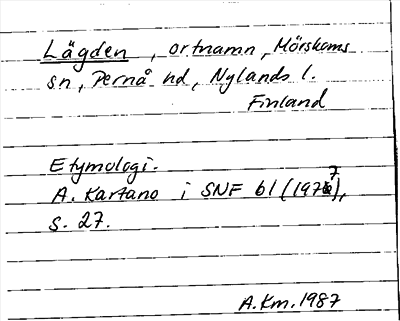 Lägden, ortnamn, Mörskoms
sn, Pernå hd, Nylands l.
Finland
Etymologi.
A. Kartano i SNF 61 (1977),
s. 27.
A.Km.1987